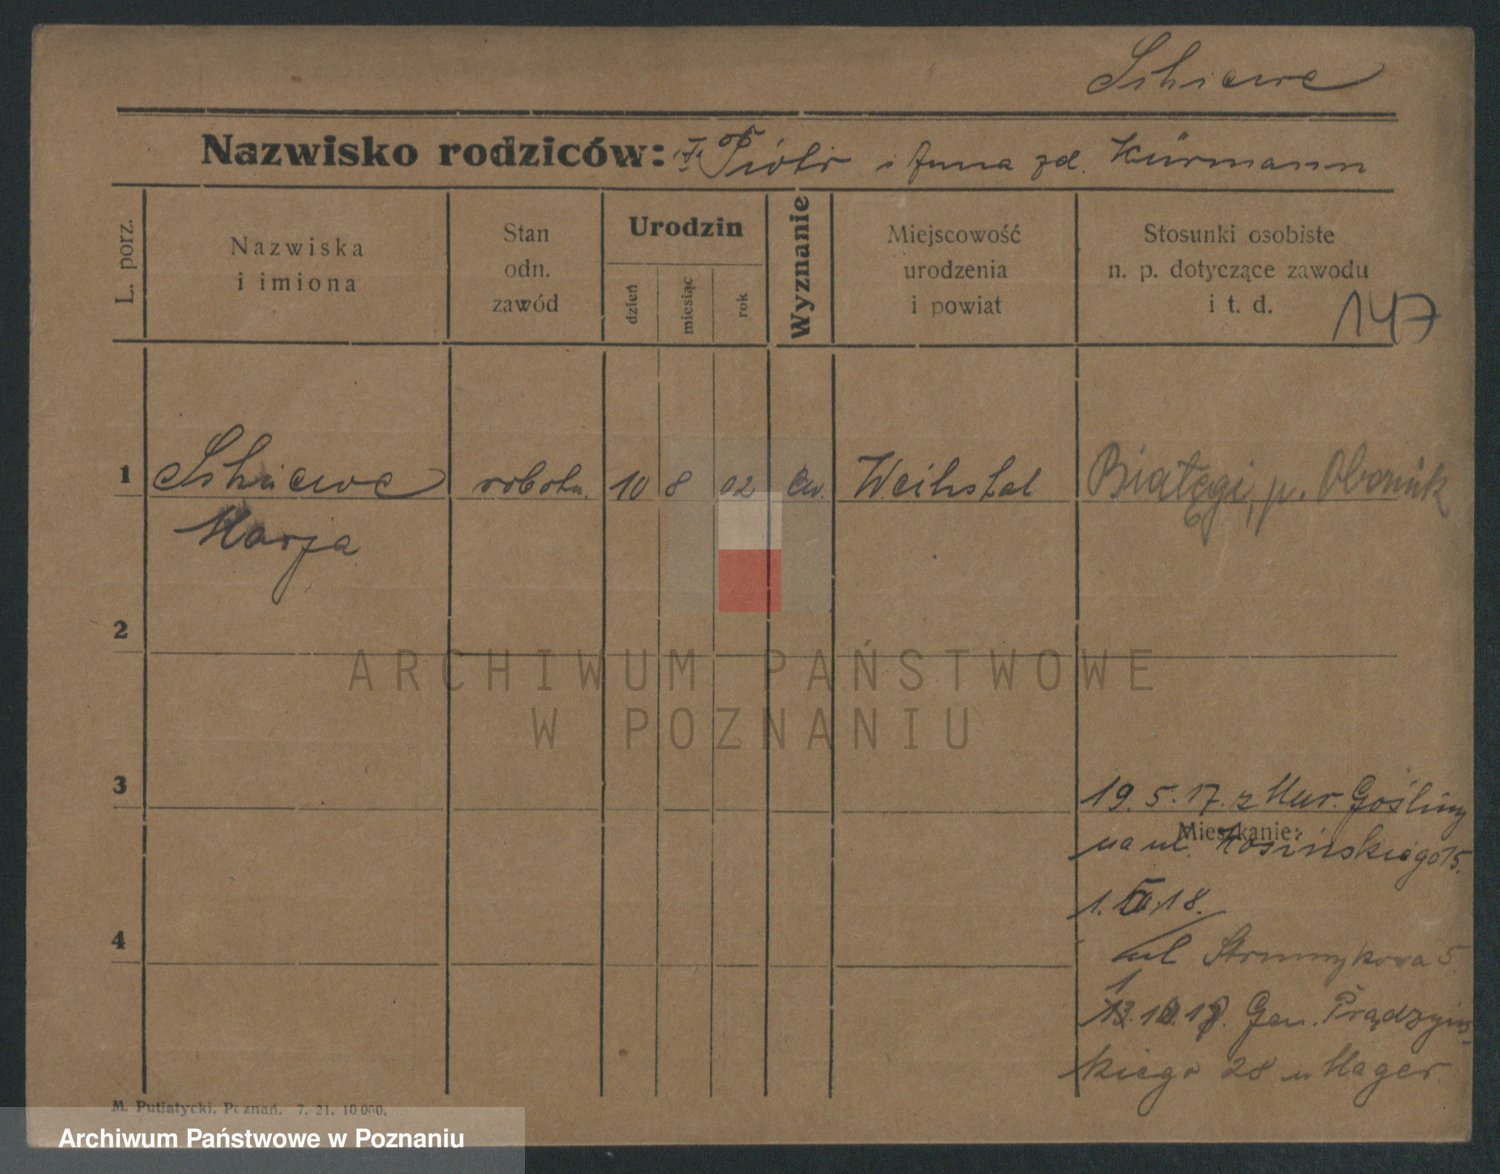 Nazwisko rodziców: Piotr i Anna zd. Kürmann
L. porz.
Nazwiska
i imiona
Stan
odn.
zawód
Urodzin
dzień
miesiąc
rok
Wyznanie
Miejscowość
urodzenia
i powiat
Stosunki osobiste
n. p. dotyczące zawodu
i t. d.
147
1
robotn. 10 8 02 Ew. Weihstal
Białęgi, p. Obornik
Marja
2
ARCHIWUM PAŃSTWOWE
W POZNANIU
3
19.5.17. z Mur. Gośliny
Mieszkanie:
na ul. Kosińskiego 15.
18.
4
ul Strumykowa 5
Gen. Prądzyńs
kiego 28 u Hager
M. Putiatycki. Poznań. 7. 21. 10 000.
Archiwum Państwowe w Poznaniu